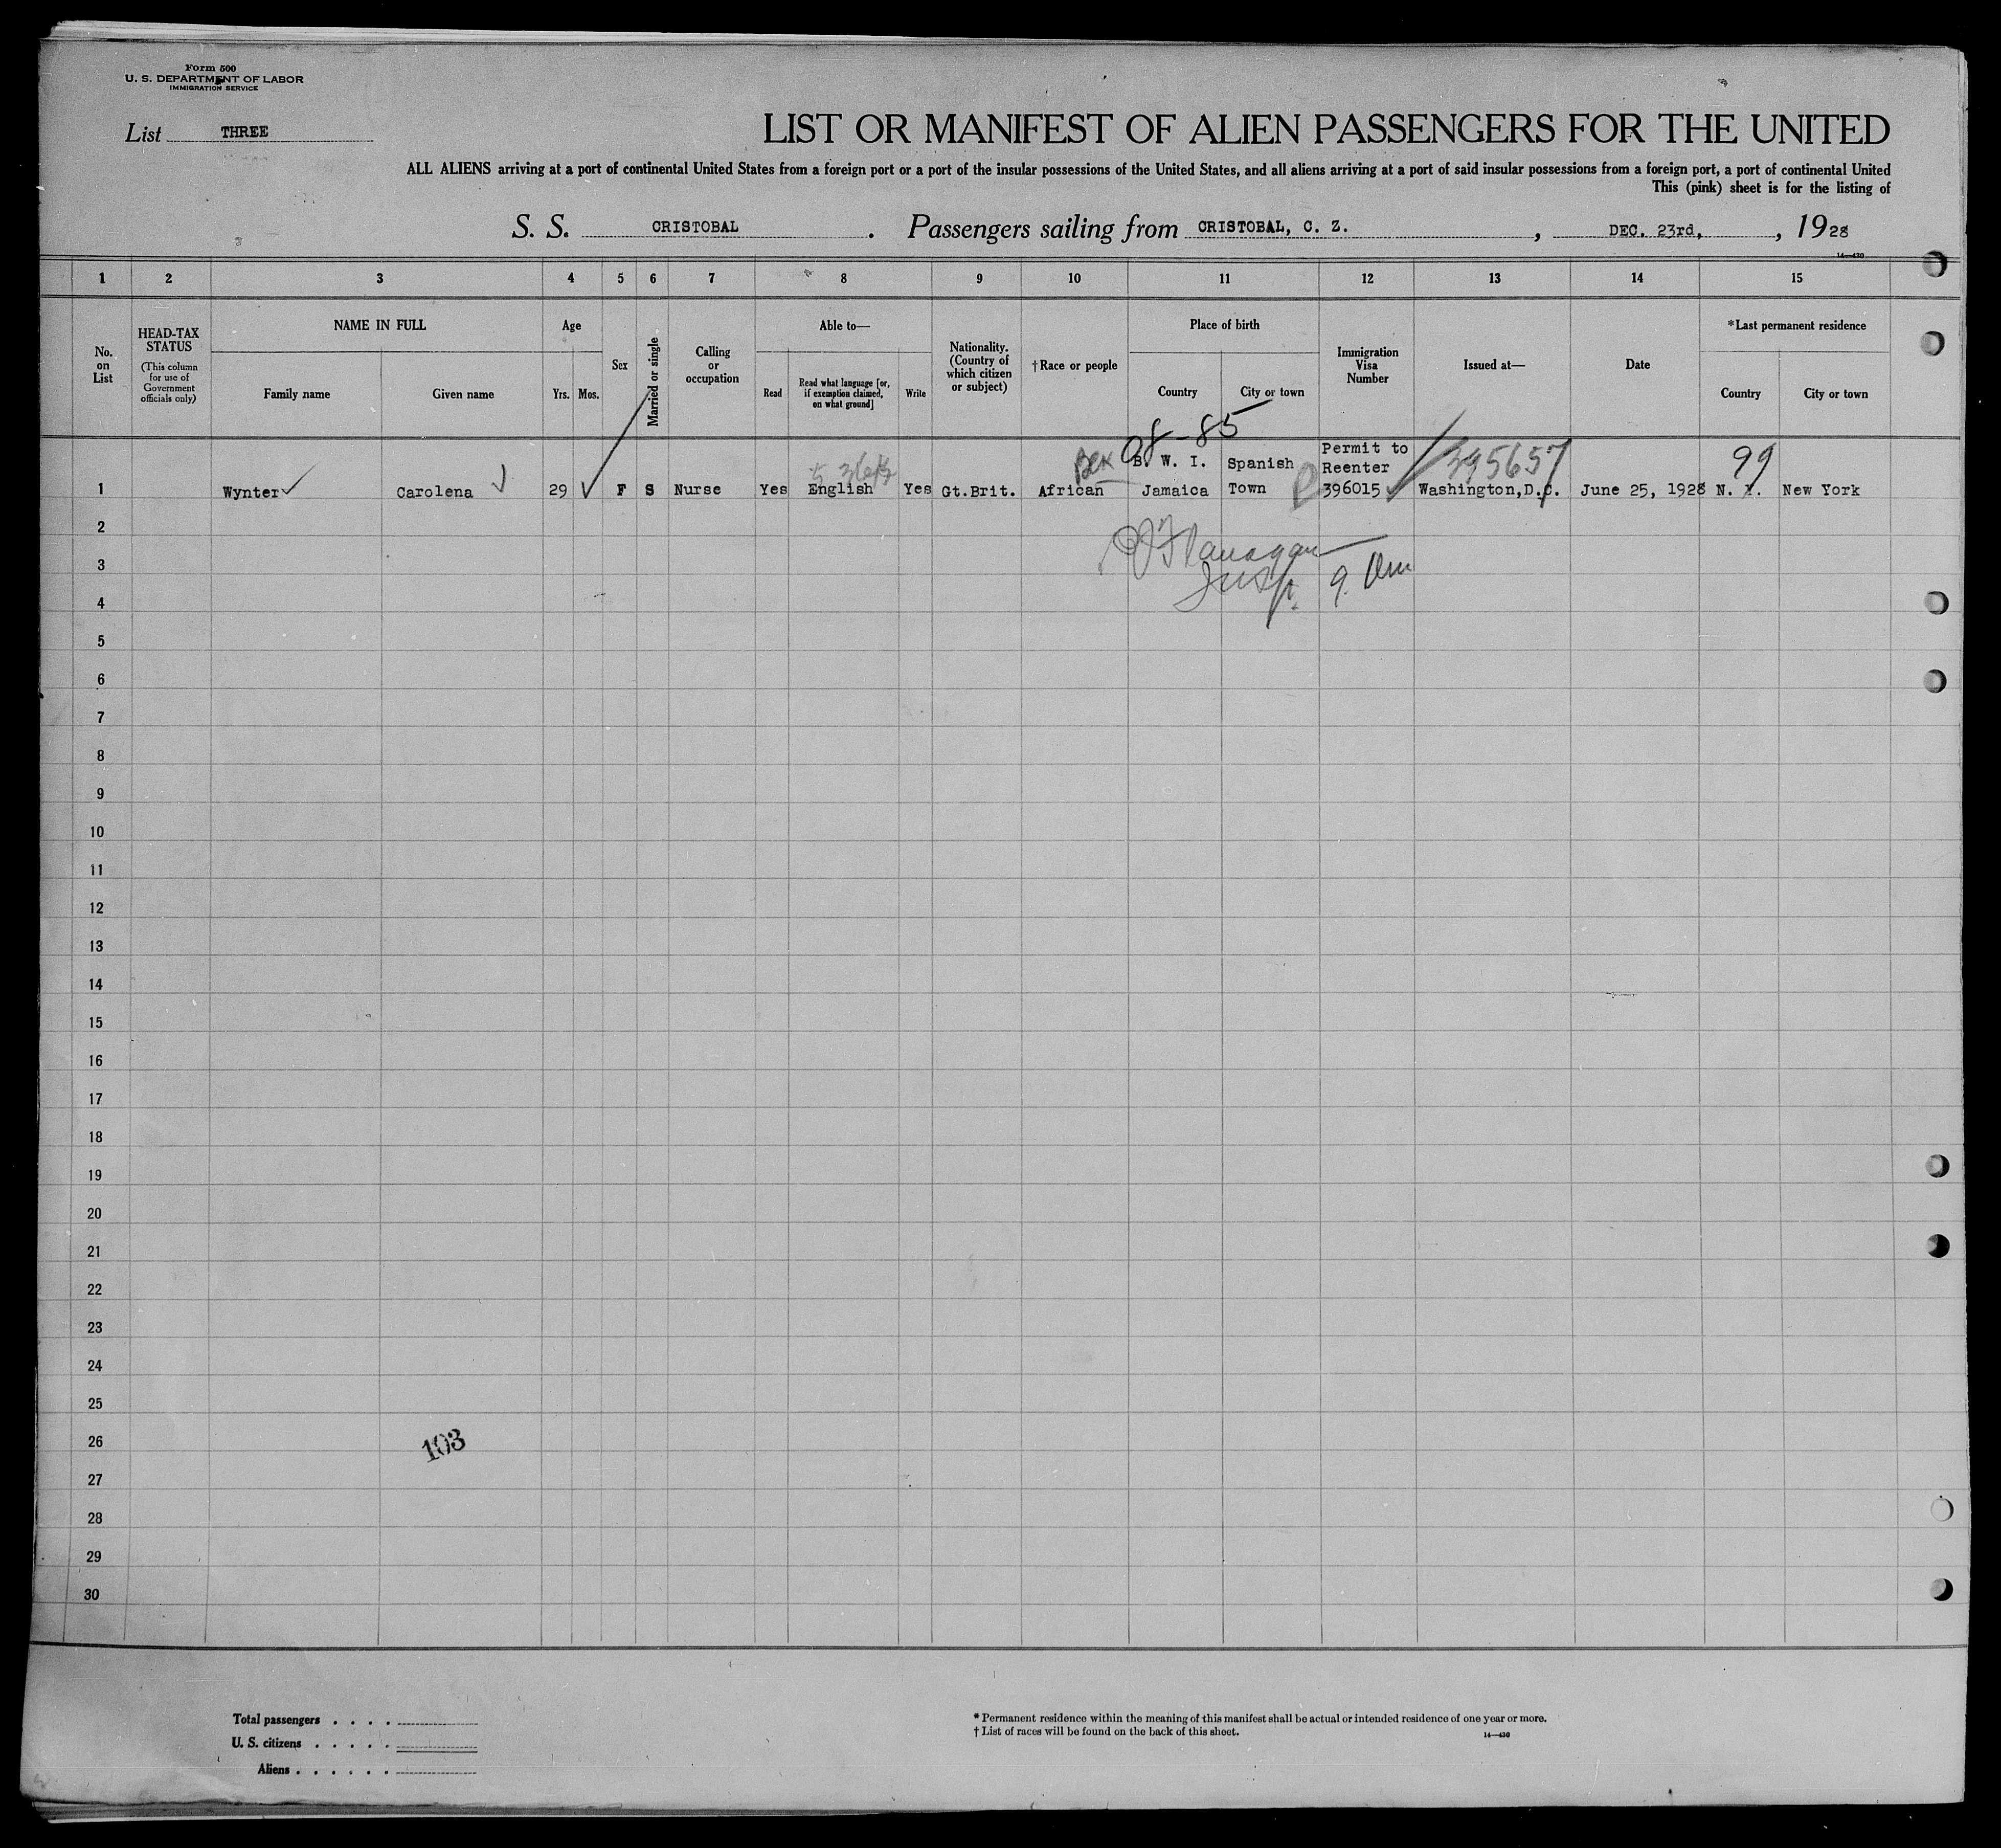 Form 500
U. S. DEPARTMENT OF LABOR
IMMIGRATION SERVICE
List THREE
LIST OR MANIFEST OF ALIEN PASSENGERS FOR THE UNITED
ALL ALIENS arriving at a port of continental United States from a foreign port or a port of the insular possessions of the United States, and all aliens arriving at a port of said insular possessions from a foreign port, a port of continental United
This (pink) sheet is for the listing of
S. S. CRISTOBAL . Passengers sailing from CRISTOBAL, C. Z. , DEC. 23rd, , 1928
14—430
1 2 3 4 5 6 7 8 9 10 11 12 13 14 15
No. on List
HEAD-TAX STATUS
(This column for use of Government officials only)
NAME IN FULL
Family name
Given name
Age
Yrs.
Mos.
Sex
Married or single
Calling or occupation
Able to—
Read
Read what language [or, if exemption claimed, on what ground]
Write
Nationality. (Country of which citizen or subject)
†Race or people
Place of birth
Country
City or town
Immigration Visa Number
Issued at—
Date
*Last permanent residence
Country
City or town
98-85
395657
99
1 Wynter Carolena 29 F S Nurse Yes English Yes Gt.Brit. African B. W. I. Jamaica Spanish Town Permit to Reenter 396015 Washington,D.C. June 25, 1928 N. Y. New York
2
3
4
5
6
7
8
9
10
11
12
13
14
15
16
17
18
19
20
21
22
23
24
25
26
27
28
29
30
Flanagan
Insp.
103
Total passengers . . . .
U. S. citizens . . . . .
Aliens . . . . . .
* Permanent residence within the meaning of this manifest shall be actual or intended residence of one year or more.
† List of races will be found on the back of this sheet.
14—430